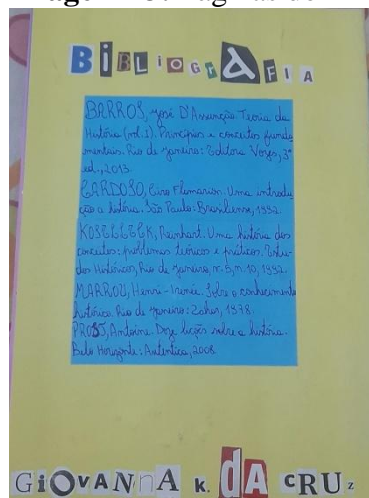 BiBLiOGrAFIA
BARROS, José D'Assunção. Teoria da
História (vol. I). Princípios e conceitos funda
mentais. Rio de Janeiro: Editora Vozes, 3ª
ed., 2013.
CARDOSO, Ciro Flamarion. Uma introdu
ção a história. São Paulo: Brasiliense, 1992.
KOSELLECK, Reinhart. Uma história dos
conceitos: problemas teóricos e práticos. Estu-
dos Históricos, Rio de Janeiro, n. 5, n. 10, 1992.
MARROU, Henri-Irenée. Sobre o conhecimento
histórico. Rio de Janeiro: Zahar, 1978.
PROST, Antoine. Doze lições sobre a história.
Belo Horizonte: Autentica, 2008.
GiOVANNA K. DA cRUz